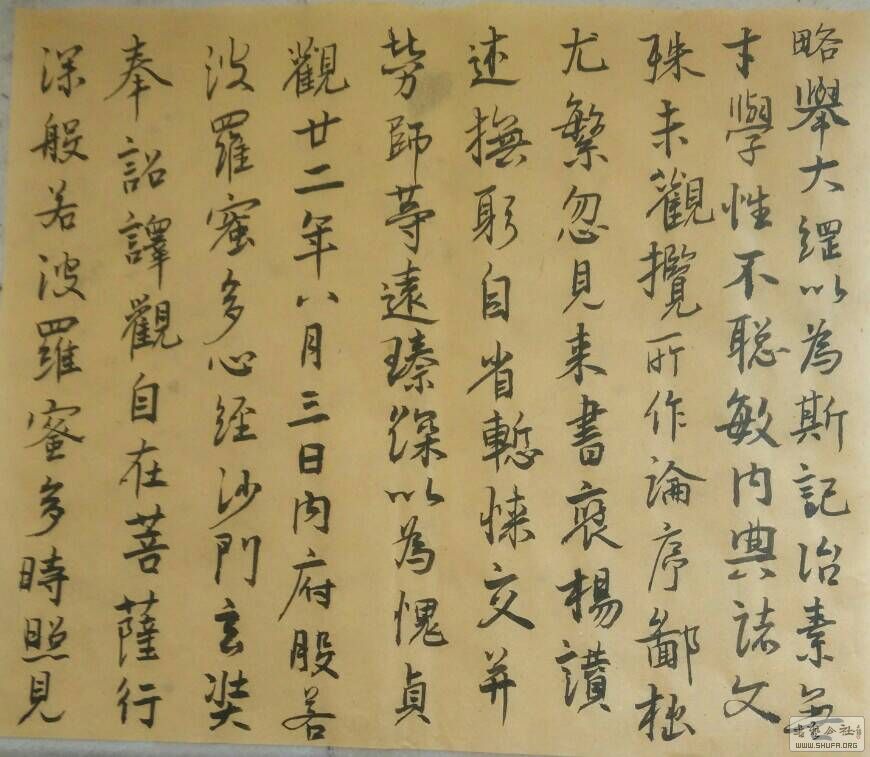 略舉大綱以為斯記治素無
才學性不聡敏内典諸文
殊未觀攬所作論序鄙拙
尤繁忽見来書褒揚讃
述撫躬自省慙悚交并
勞師等遠臻深以為愧貞
觀廿二年八月三日内府般若
波羅蜜多心經沙門玄奘
奉詔譯觀自在菩薩行
深般若波羅蜜多時照見
WWW.SHUFA.ORG